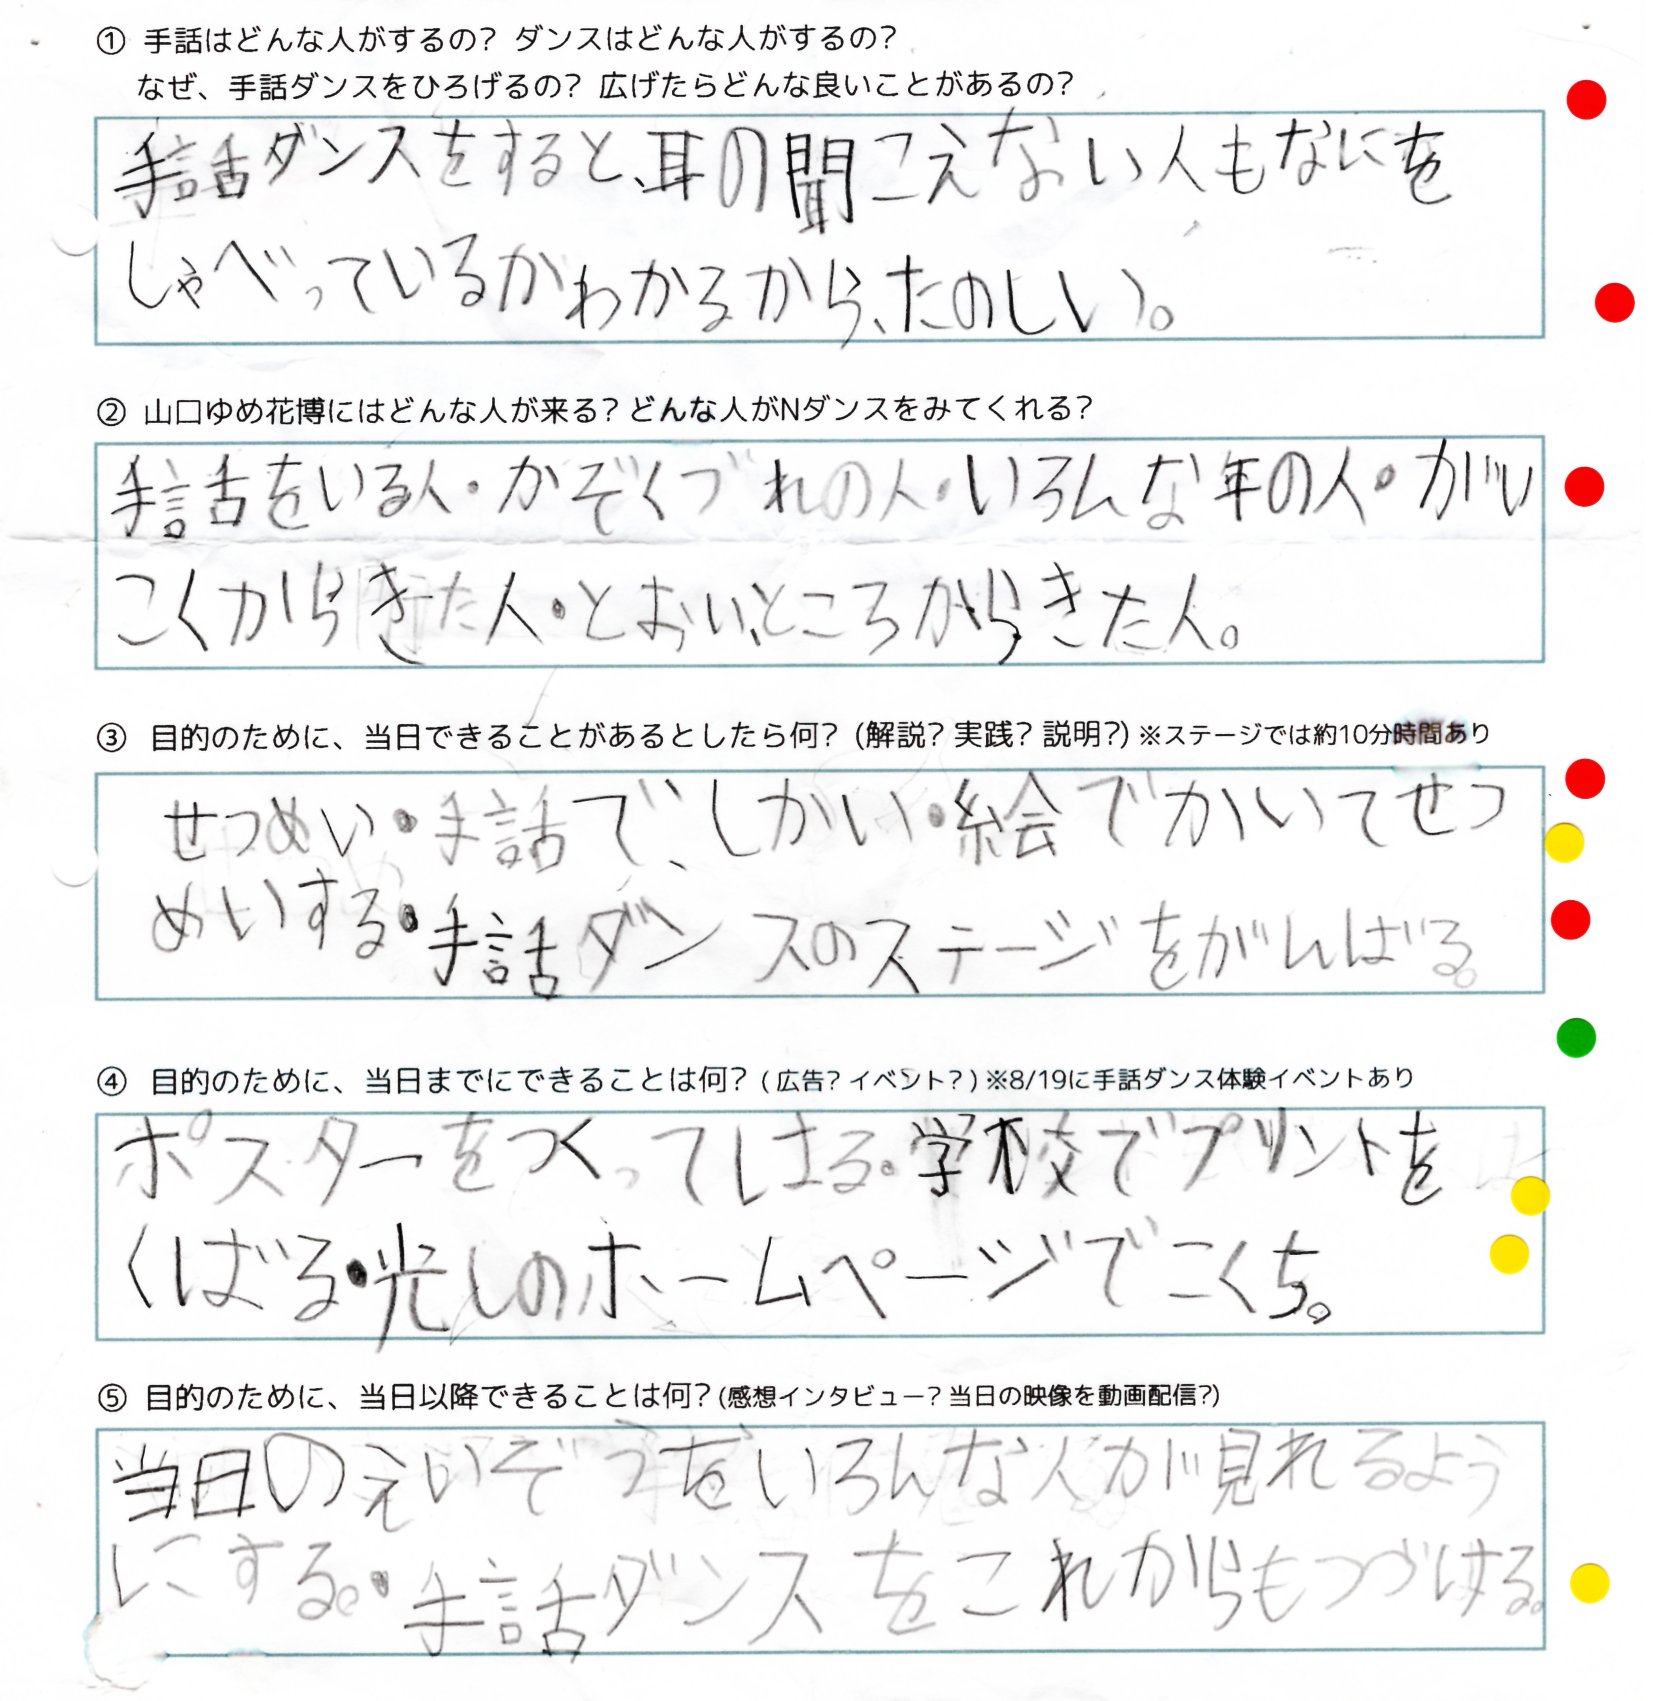 ① 手話はどんな人がするの? ダンスはどんな人がするの?
なぜ、手話ダンスをひろげるの? 広げたらどんな良いことがあるの?
手話ダンスをすると、耳の聞こえない人もなにを
しゃべっているかわかるから、たのしい。
② 山口ゆめ花博にはどんな人が来る? どんな人がNダンスをみてくれる?
手話をいる人・かぞくづれの人・いろんな年の人・がい
こくからきた人・とおい、ところからきた人。
③ 目的のために、当日できることがあるとしたら何? (解説? 実践? 説明?) ※ステージでは約10分時間あり
せつめい・手話で、しかい・絵でかいてせつ
めいする・手話ダンスのステージをがんばる。
④ 目的のために、当日までにできることは何? ( 広告? イベント? ) ※8/19に手話ダンス体験イベントあり
ポスターをつくってはる・学校でプリントを
くばる・光しのホームページでこくち。
⑤ 目的のために、当日以降できることは何? (感想インタビュー? 当日の映像を動画配信?)
当日のえいぞうをいろんな人が見れるよう
にする。・手話ダンスをこれからもつづける。